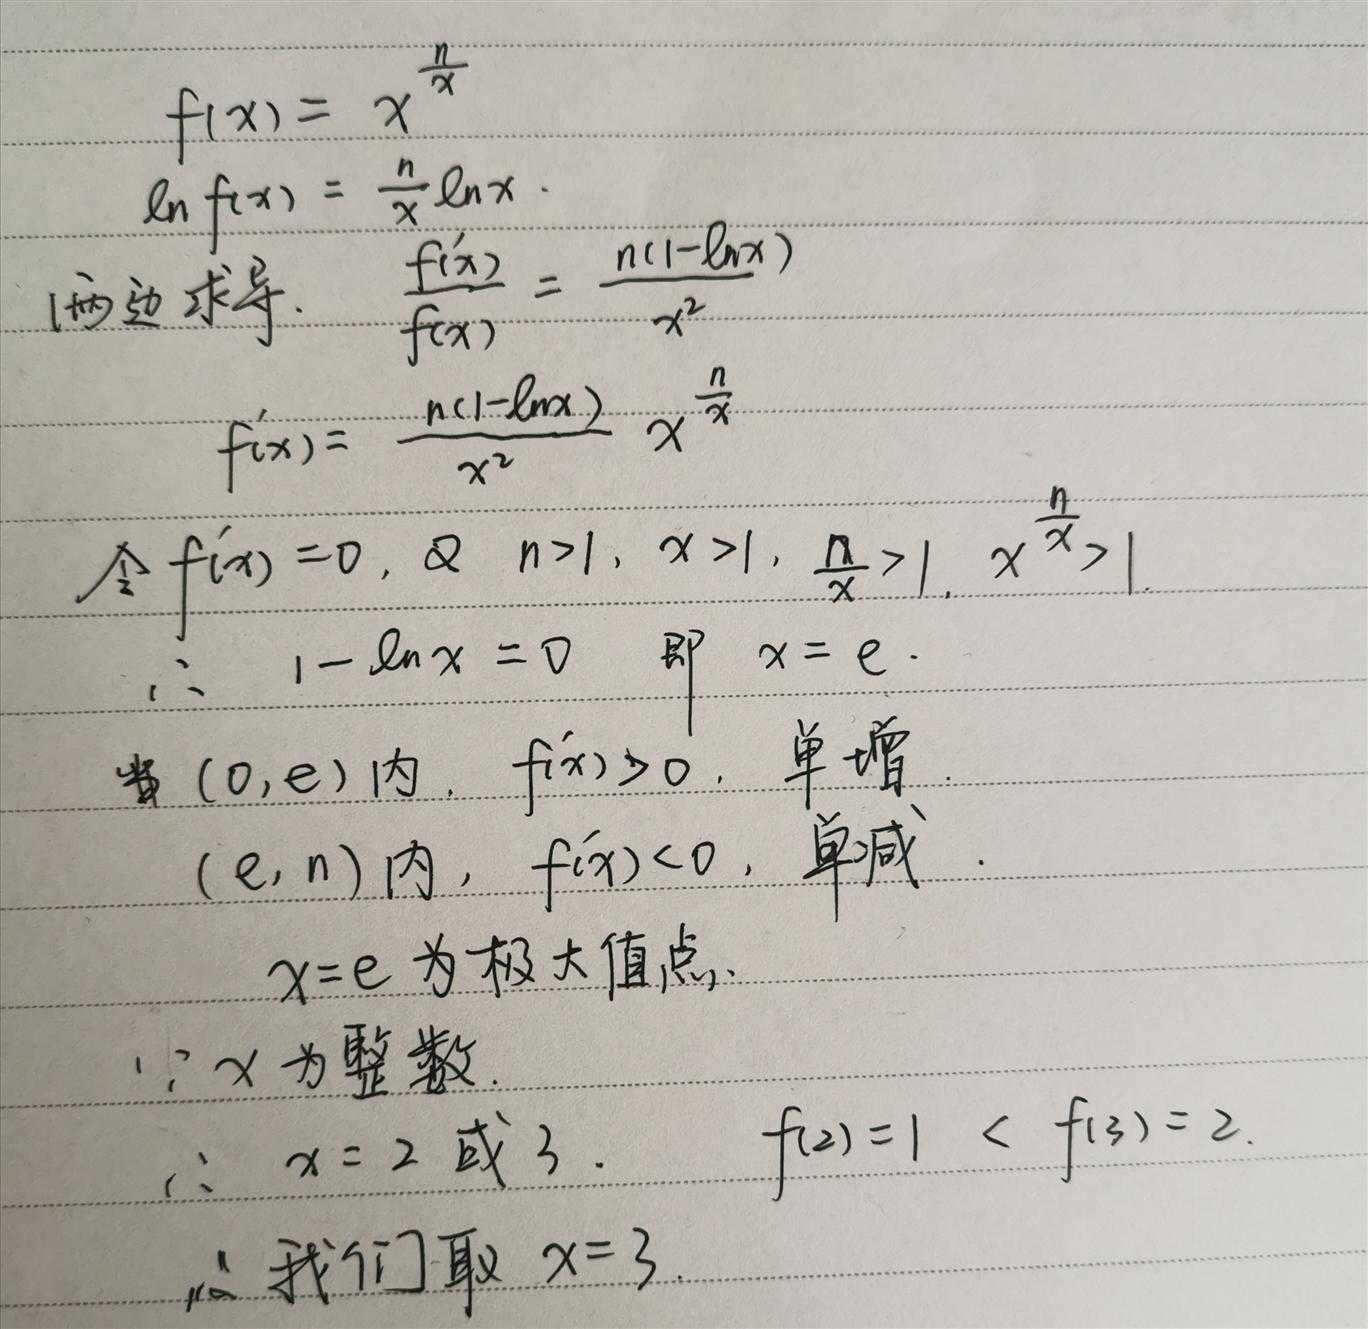 f(x) = x^{\frac{n}{x}}
ln f(x) = \frac{n}{x} ln x .
两边求导. \frac{f'(x)}{f(x)} = \frac{n(1-lnx)}{x^2}
f'(x) = \frac{n(1-lnx)}{x^2} x^{\frac{n}{x}}
令 f'(x) = 0, 又 n>1, x>1, \frac{n}{x}>1, x^{\frac{n}{x}}>1.
∴ 1-lnx = 0 即 x = e .
当 (0,e) 内, f'(x)>0, 单增.
(e,n) 内, f'(x)<0, 单减.
x=e 为极大值点.
∵ x 为整数.
∴ x = 2 或 3 . f(2)=1 < f(3)=2.
∴ 我们取 x=3.